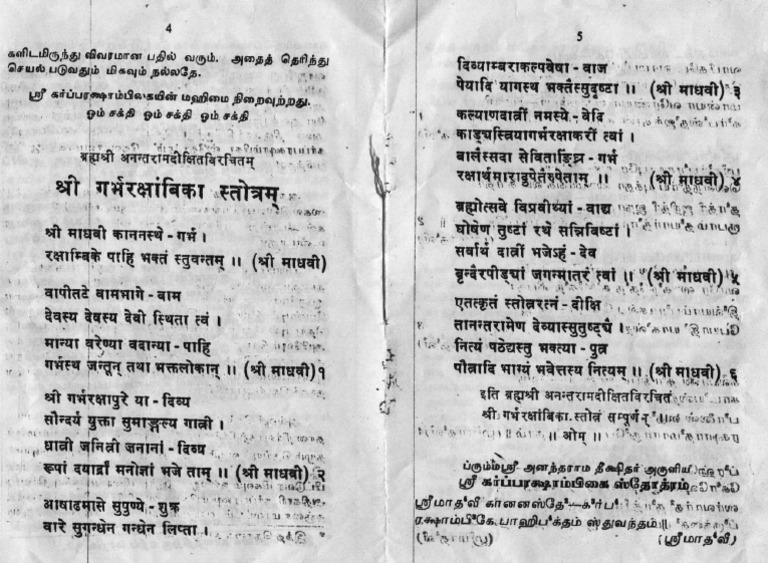 4
களிடமிருந்து விவரமான பதில் வரும். அதைத் தெரிந்து
செயல் படுவதும் மிகவும் நல்லதே.
ஸ்ரீ கர்ப்பரக்ஷாம்பிகையின் மஹிமை நிறைவுற்றது.
ஓம் சக்தி ஓம் சக்தி ஓம் சக்தி
ब्रह्मश्री अनन्तरामदीक्षितविरचितम्
श्री गर्भरक्षांबिका स्तोत्रम्
श्री माधवी काननस्थे - गर्भ ।
रक्षाम्बिके पाहि भक्तं स्तुवन्तम् ॥ (श्री माधवी)
वापीतटे वामभागे - वाम
देवस्य देवस्य देवी स्थिता त्वं ।
मान्या वरेण्या वदान्या - पाहि
गर्भस्थ जन्तून् तथा भक्तलोकान् ॥ (श्री माधवी) १
श्री गर्भरक्षापुरे या - दिव्य
सौन्दर्य युक्ता सुमाङ्गल्य गात्री ।
धात्री जनित्री जनानां - दिव्य
रूपां दयार्द्रां मनोज्ञां भजे ताम् ॥ (श्री माधवी) २
आषाढमासे सुपुण्ये - शुक्र
वारे सुगन्धेन गन्धेन लिप्ता ।
5
दिव्याम्बराकल्पवेषा - वाज
पेयादि यागस्थ भक्तैस्सुदृष्टा ॥ (श्री माधवी) ३
कल्याणदात्रीं नमस्ये - वेदि
काङ्घस्त्रियागर्भरक्षाकरीं त्वां ।
बालैस्सदा सेविताङ्घ्रि - गर्भ
रक्षार्थमारादुपेतैरुपेताम् ॥ (श्री माधवी) ४
ब्रह्मोत्सवे विप्रवीथ्यां - वाद्य
घोषेण तुष्टां रथे सन्निविष्टां ।
सर्वार्थ दात्रीं भजेऽहं - देव
बृन्दैरपीड्यां जगन्मातरं त्वां ॥ (श्री माधवी) ५
एतत्कृतं स्तोत्ररत्नं - दीक्षि
तानन्तरामेण देव्यास्सुतुष्ट्यै ।
नित्यं पठेद्यस्तु भक्त्या - पुत्र
पौत्रादि भाग्यं भवेत्तस्य नित्यम् ॥ (श्री माधवी) ६
इति ब्रह्मश्री अनन्तरामदीक्षितविरचितं
श्री गर्भरक्षांबिका स्तोत्रं सम्पूर्णम्
॥ ओम् ॥
ப்ரும்மஸ்ரீ அனந்தராம தீக்ஷிதர் அருளிய
ஸ்ரீ கர்ப்பரக்ஷாம்பிகை ஸ்தோத்ரம்
ஸ்ரீமாத வீ கானனஸ்தே - கர்ப
ரக்ஷாம்பிகே பாஹிபக்தம் ஸ்துவந்தம்
(ஸ்ரீமாத வீ)